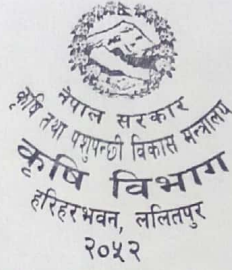 नेपाल सरकार
कृषि तथा पशुपन्छी विकास मन्त्रालय
कृषि विभाग
हरिहरभवन, ललितपुर
२०५२